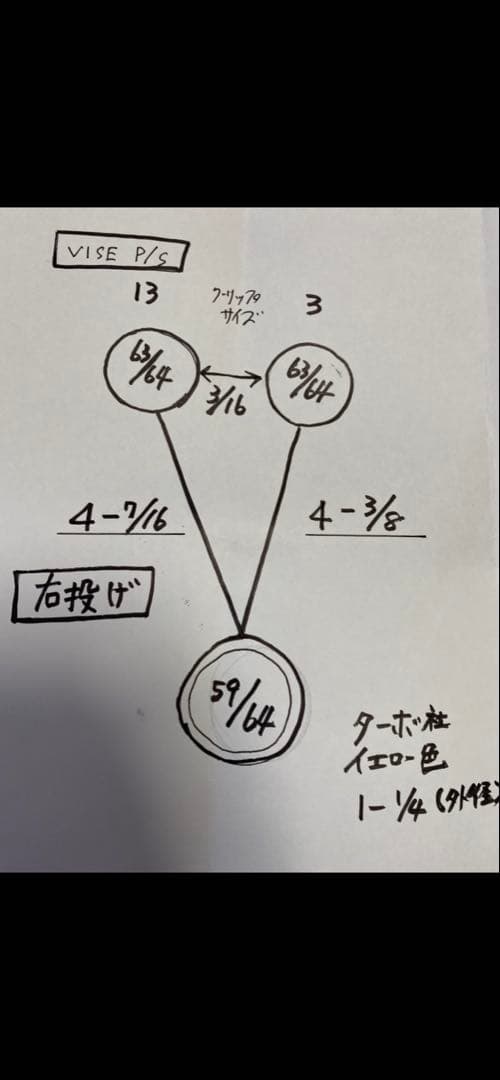 VISE P/S
13
グリップ
サイズ
3
63/64
63/64
3/16
4-7/16
4-3/8
右投げ
59/64
ターボ社
イエロー色
1-1/4(外径)